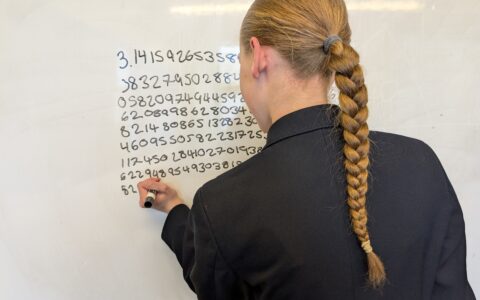 3.14159265358
8327950288
05820974944592
6208998628034
8214808651328230
460955058223172 5
117450284102701938
622948954930381
82